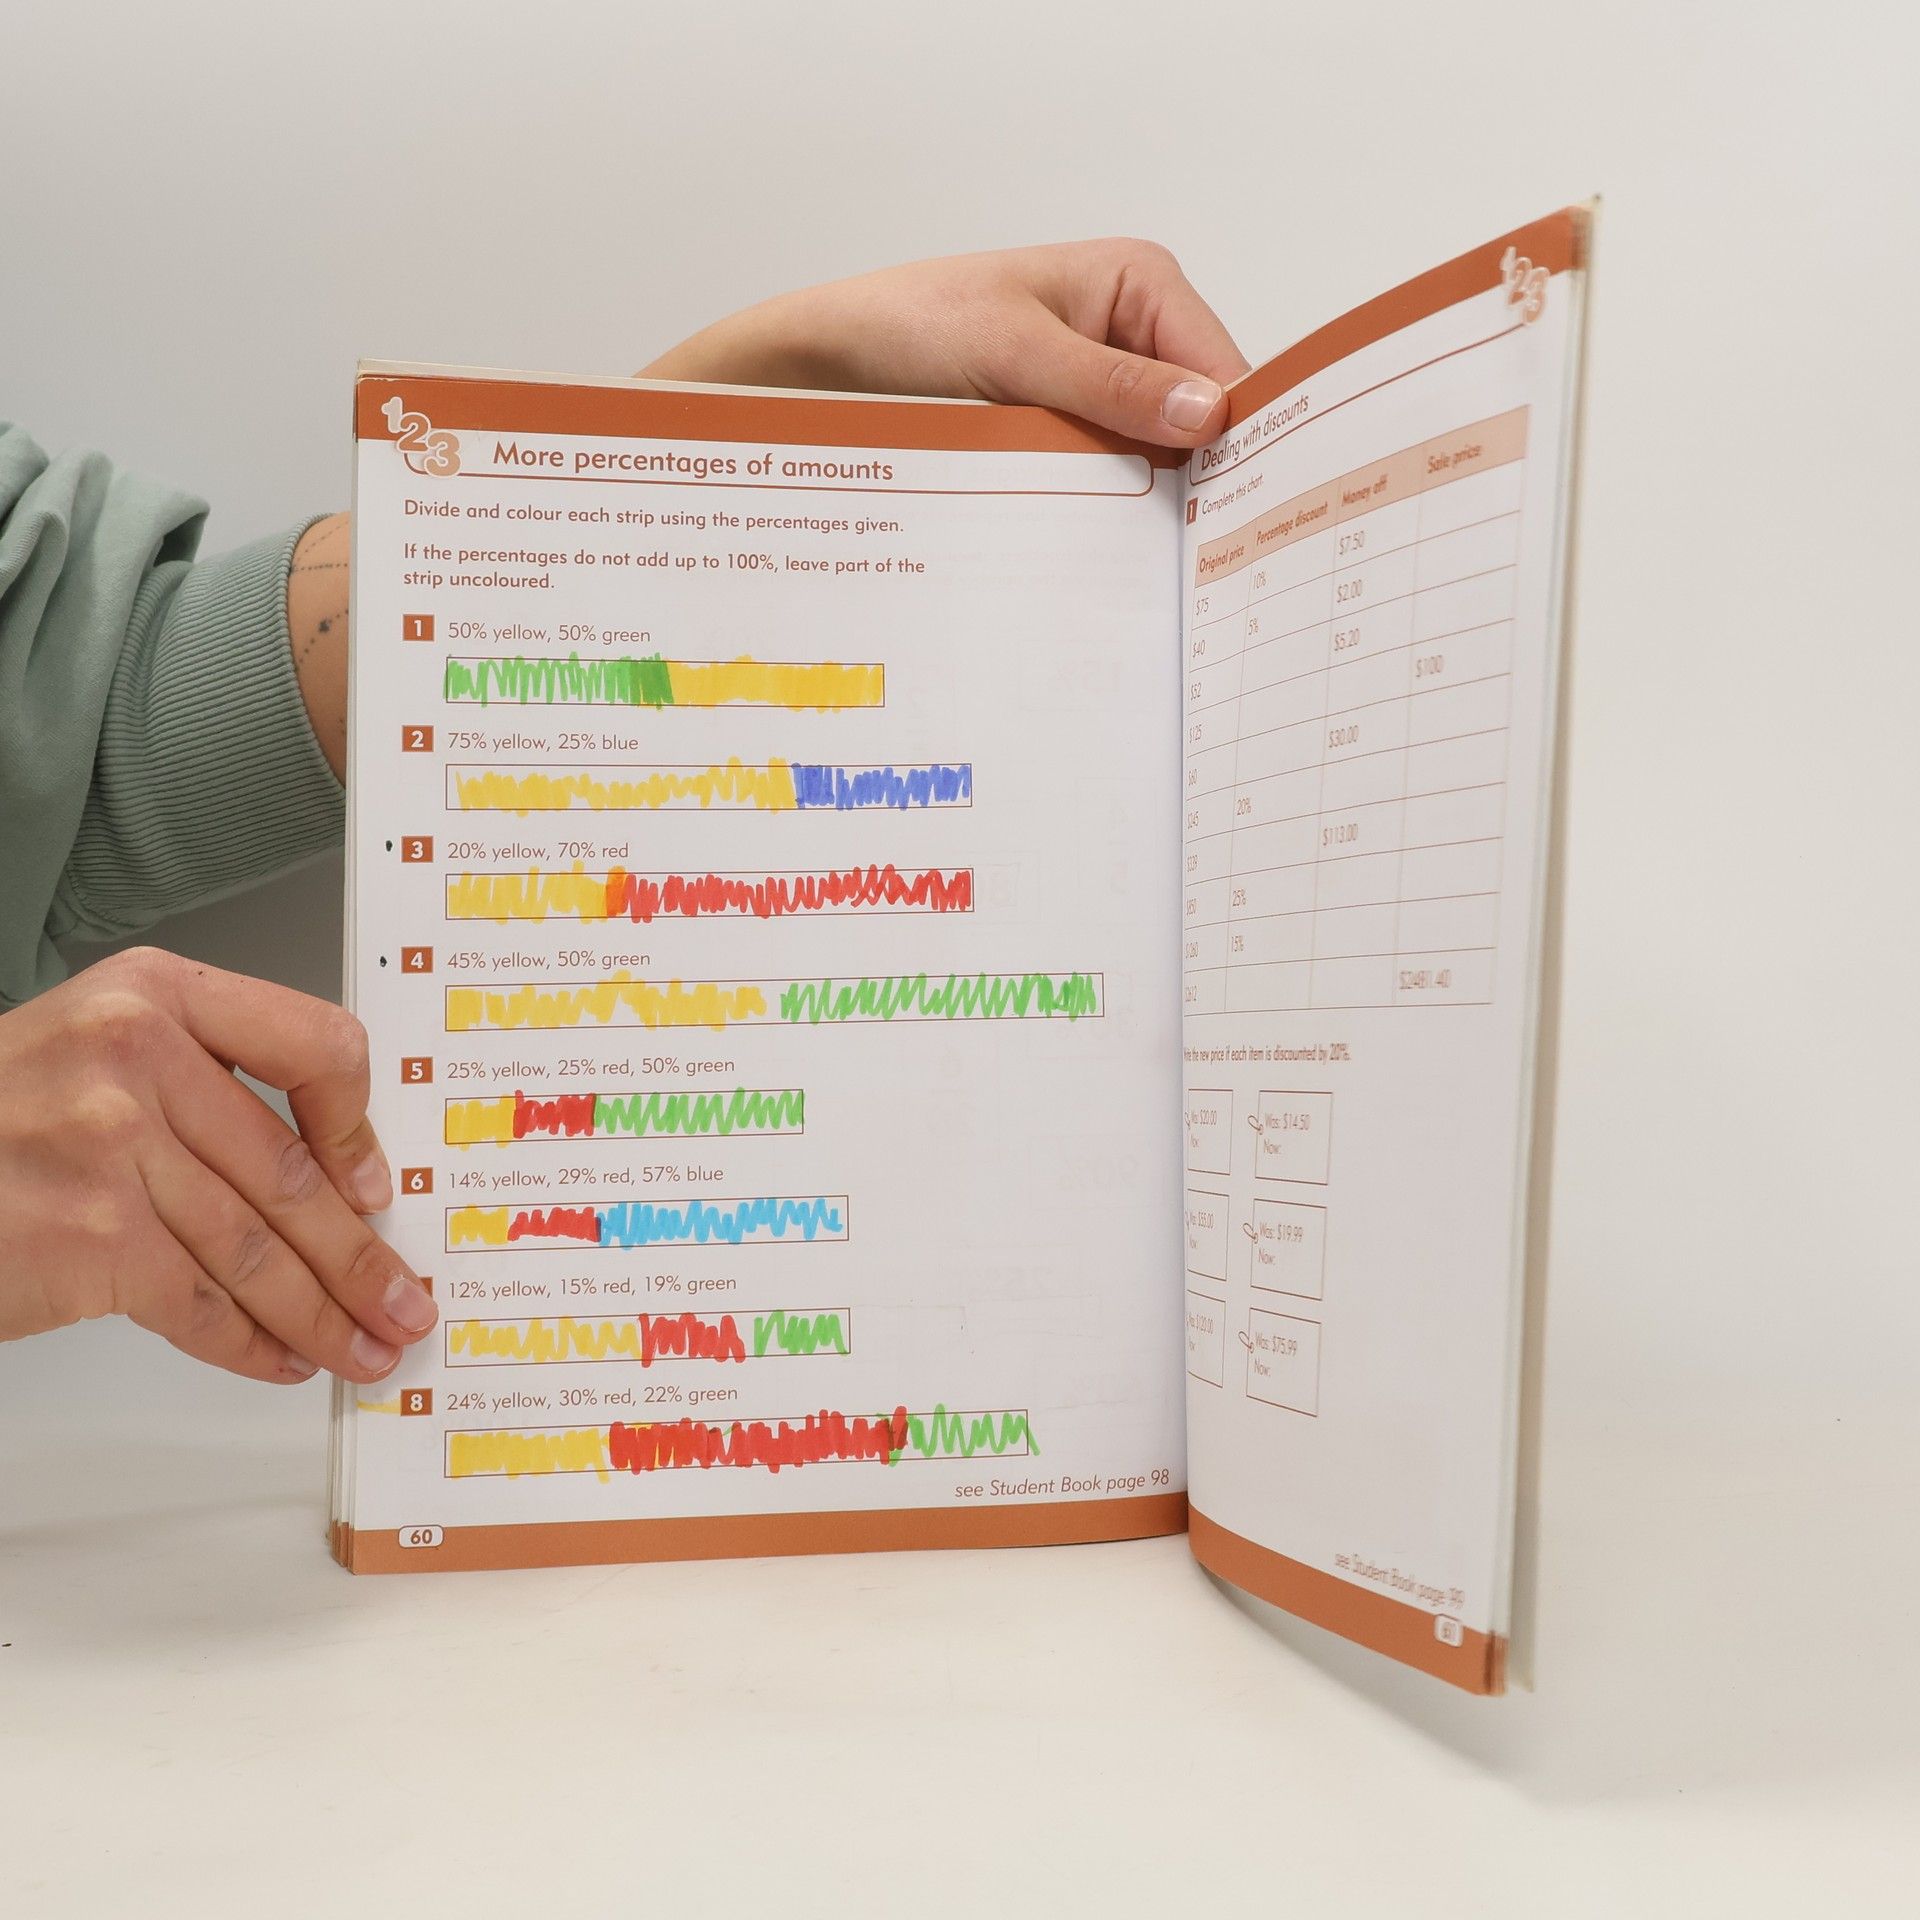 123
More percentages of amounts
Divide and colour each strip using the percentages given.
If the percentages do not add up to 100%, leave part of the
strip uncoloured.
1 50% yellow, 50% green
2 75% yellow, 25% blue
3 20% yellow, 70% red
4 45% yellow, 50% green
5 25% yellow, 25% red, 50% green
6 14% yellow, 29% red, 57% blue
12% yellow, 15% red, 19% green
8 24% yellow, 30% red, 22% green
see Student Book page 98
60
123
Dealing with discounts
1 Complete this chart.
Original price Percentage discount Money off Sale price
$75 10% $7.50
$40 5% $2.00
$52 $5.20
$125 $100
$60 $30.00
$245 20%
$339 $113.00
$850 25%
15%
$2481.40
the new price if each item is discounted by 20%.
Was: $20.00 Was: $14.50
Now: Now:
$55.00 Was: $19.99
Now: Now:
$120.00 Was: $75.99
Now:
see Student Book page 99
61